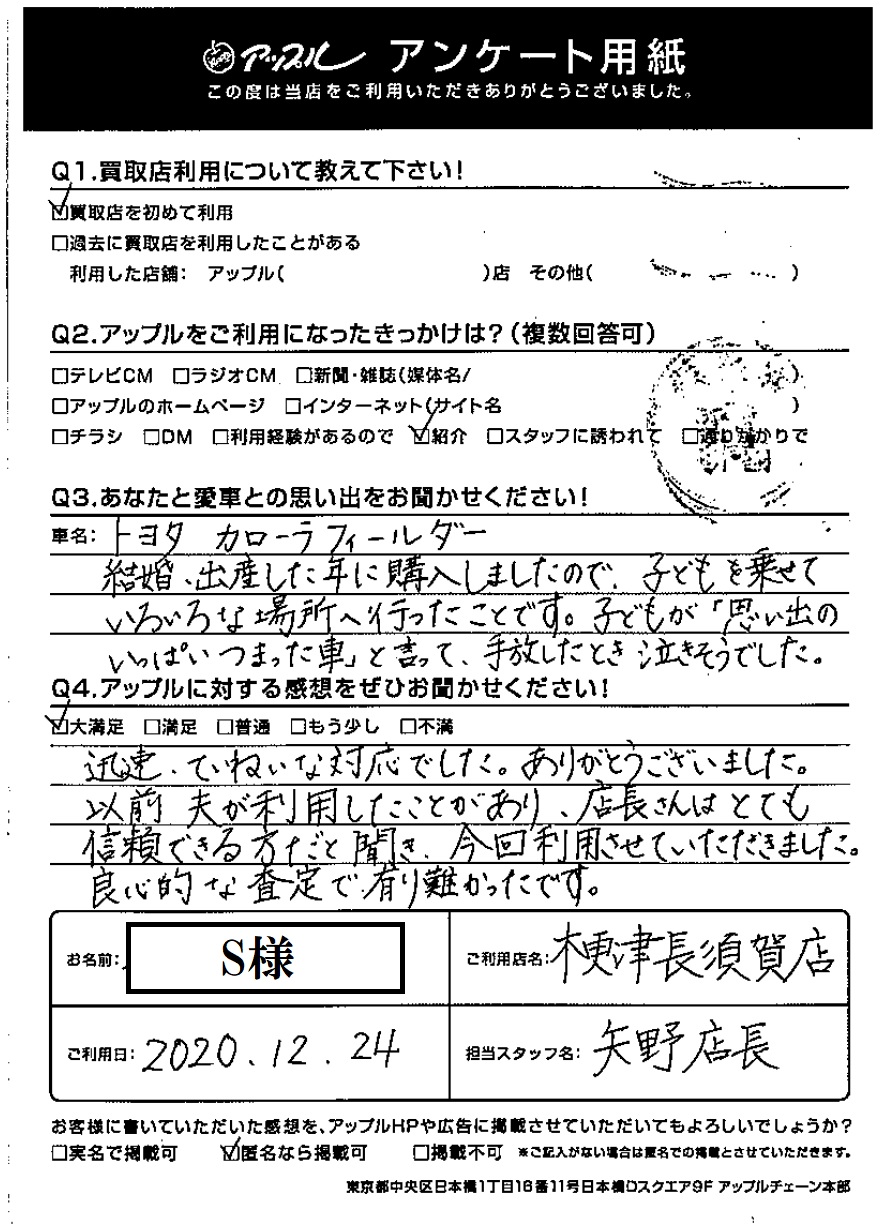 アップル アンケート用紙
この度は当店をご利用いただきありがとうございました。
Q1.買取店利用について教えて下さい!
☑買取店を初めて利用
□過去に買取店を利用したことがある
利用した店舗: アップル( )店 その他( )
Q2.アップルをご利用になったきっかけは?(複数回答可)
□テレビCM □ラジオCM □新聞・雑誌(媒体名/ )
□アップルのホームページ □インターネット(サイト名 )
□チラシ □DM □利用経験があるので ☑紹介 □スタッフに誘われて □通りがかりで
Q3.あなたと愛車との思い出をお聞かせください!
車名: トヨタ カローラフィールダー
結婚、出産した年に購入しましたので、子どもを乗せて
いろいろな場所へ行ったことです。子どもが「思い出の
いっぱいつまった車」と言って、手放したとき泣きそうでした。
Q4.アップルに対する感想をぜひお聞かせください!
☑大満足 □満足 □普通 □もう少し □不満
迅速、ていねいな対応でした。ありがとうございました。
以前 夫が利用したことがあり、店長さんはとても
信頼できる方だと聞き、今回利用させていただきました。
良心的な査定で有り難かったです。
お名前: S様
ご利用店名: 木更津長須賀店
ご利用日: 2020.12.24
担当スタッフ名: 矢野店長
お客様に書いていただいた感想を、アップルHPや広告に掲載させていただいてもよろしいでしょうか?
□実名で掲載可 ☑匿名なら掲載可 □掲載不可 *ご記入がない場合は匿名での掲載とさせていただきます。
東京都中央区日本橋1丁目16番11号日本橋Dスクエア9F アップルチェーン本部